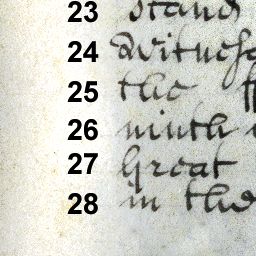 23 stand
24 witness
25 the
26 ninth
27 Great
28 in the